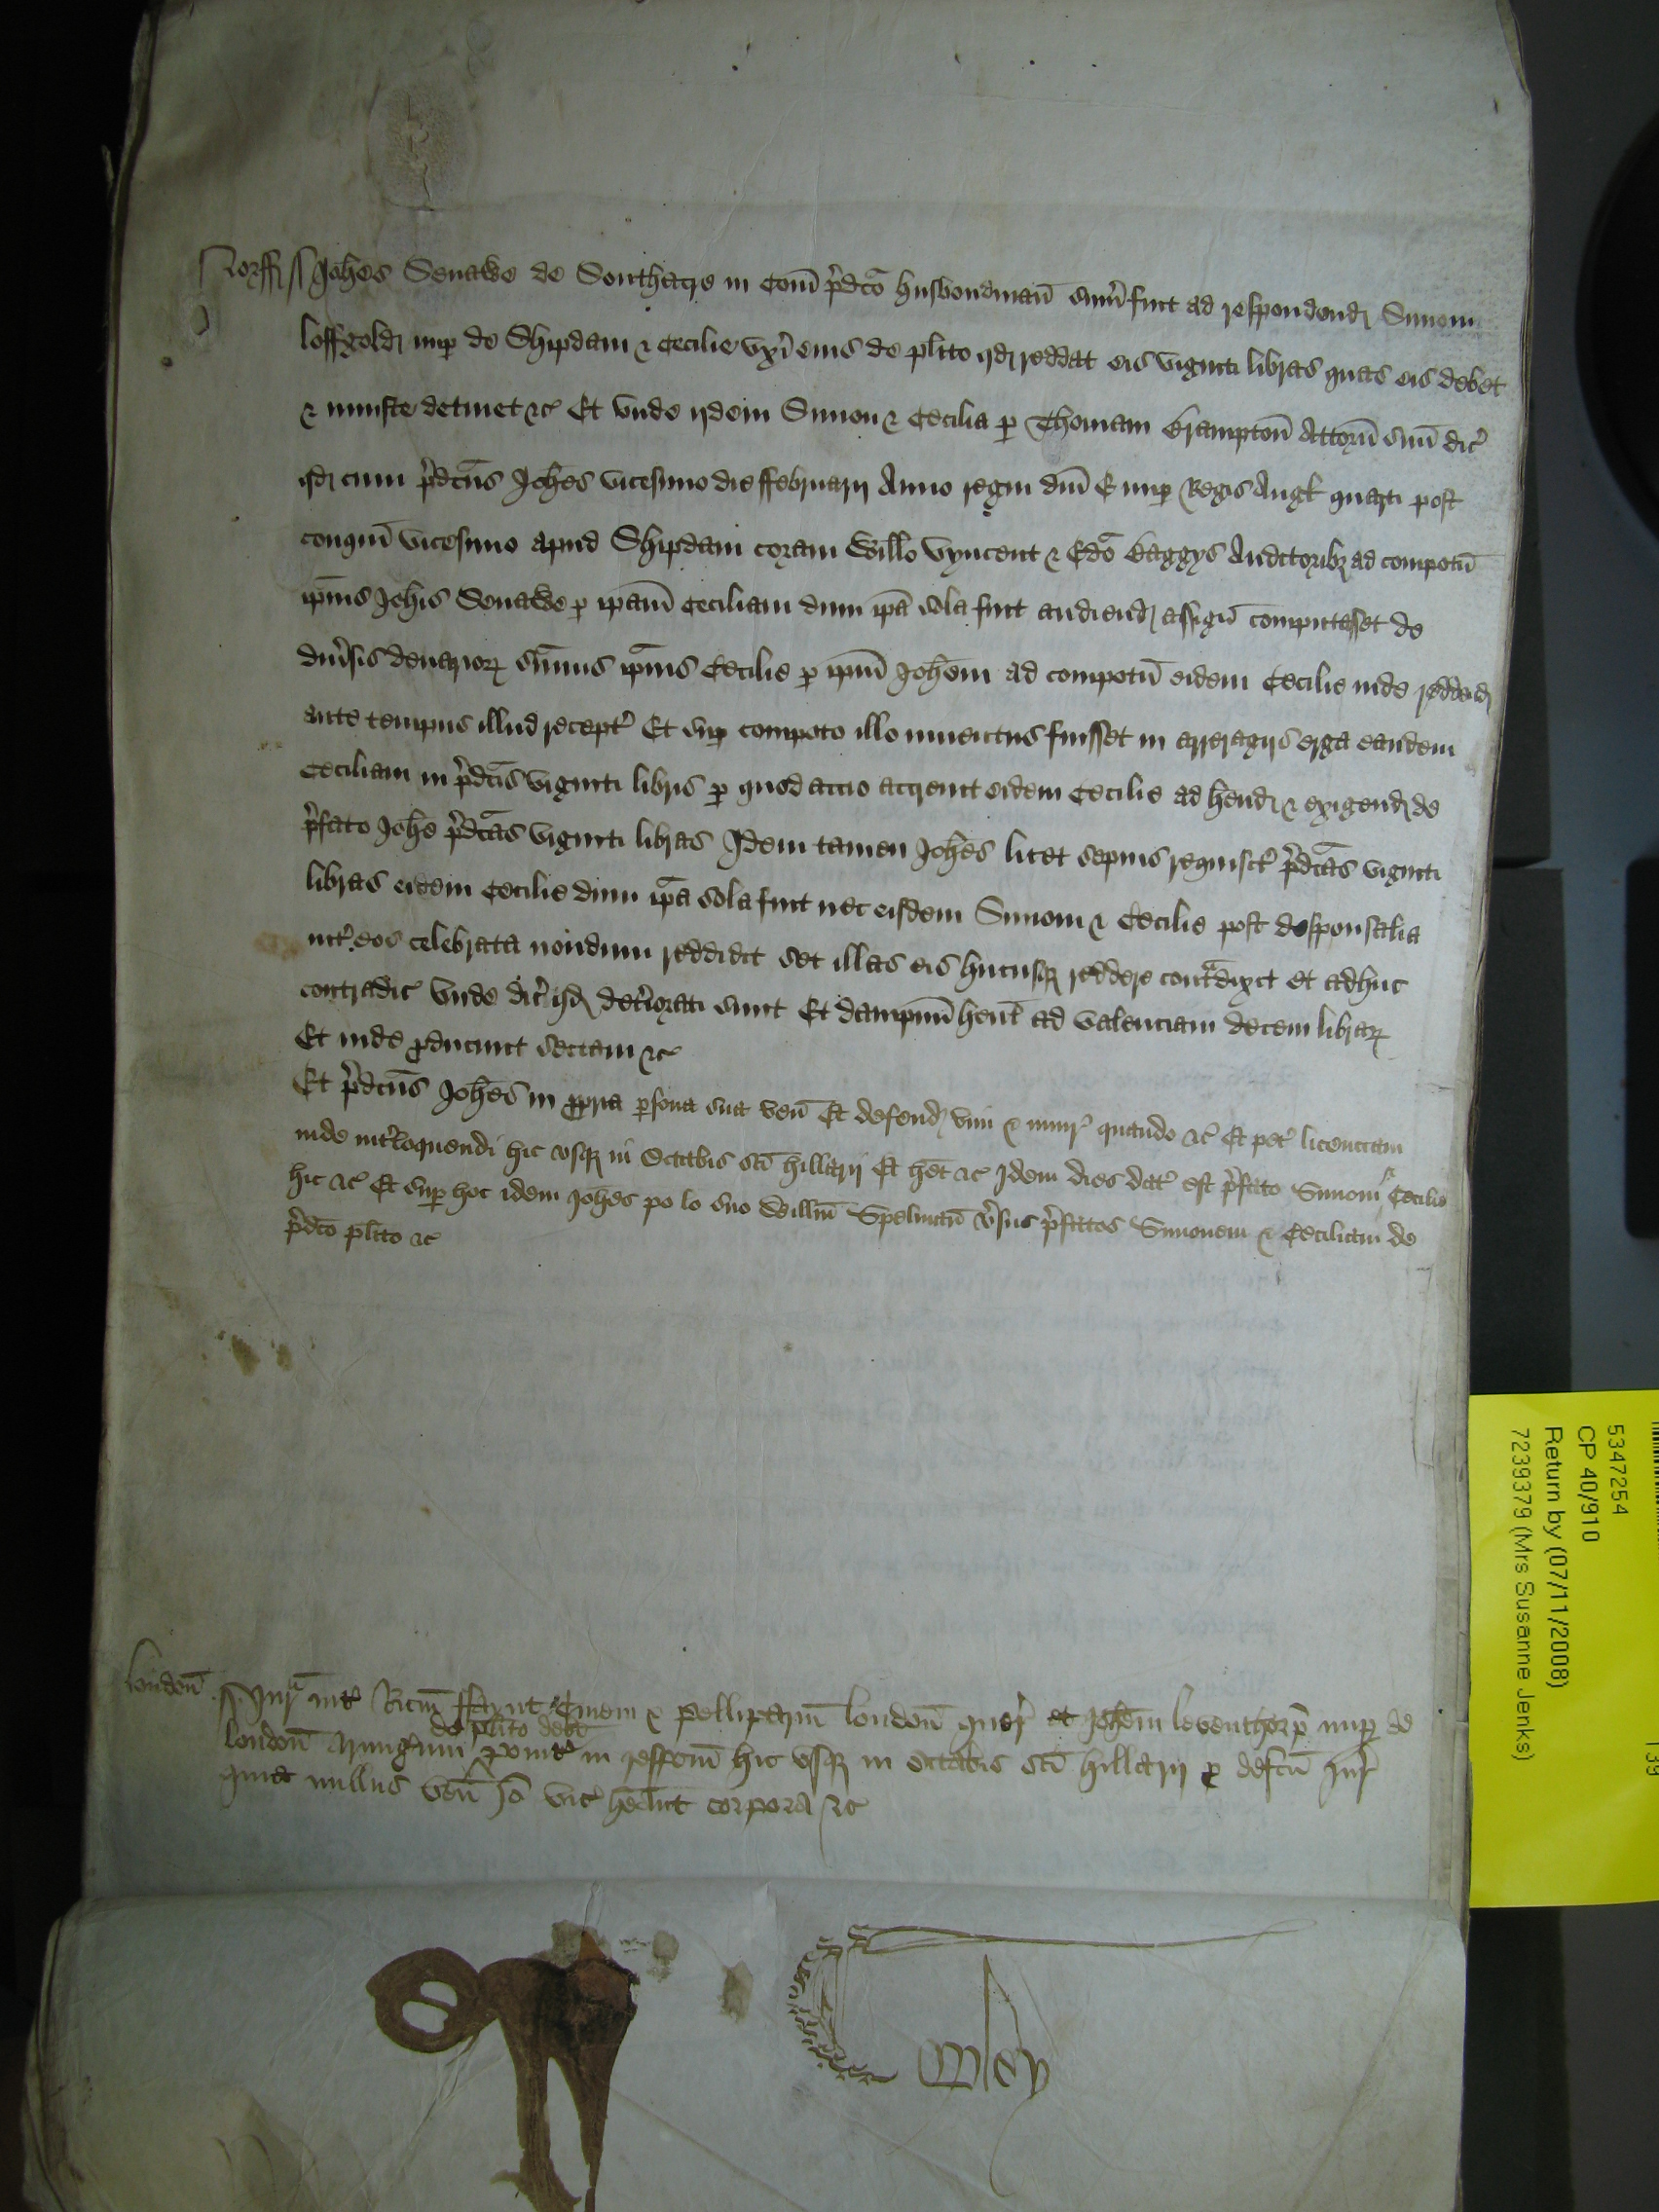 Norff ss Johes Senawe de Southacre in Com p̄dco husbondman sum̄ fuit ad respondend Simoni
loffgold nup de Shipdam & Cecilie vxi eius de plito qd reddat eis viginti libras quas eis debet
& iniuste detinet &c Et vnde ijdem Simon & Cecilia p Thomam Brampton Attorn suu dic
qd cum p̄dcus Johes vicesimo die ffebruarij Anno regni dni E nup Regis Angl quarti post
conqm vicesimo apud Shipdam coram Willo Vyncent & Edo Baggys Auditoribz ad compotu
ipius Johis Senawe p ipam Ceciliam dum ipa sola fuit audiend assign computasset de
diuisis denarior sum̄is ipius Cecilie p ipm Johem ad compotu eidem Cecilie inde reddend
ante tempus illud recept Et sup compoto illo inuentus fuisset in arreragijs erga eandem
Ceciliam in p̄dcis viginti libris p quod accio accreuit eidem Cecilie ad hend & exigend de
p̄fato Johe p̄dcas viginti libras Idem tamen Johes licet sepius requisit p̄dcas viginti
libras eidem Cecilie dum ipa sola fuit nec eisdem Simoni & Cecilie post desponsalia
int eos celebrata nondum reddidit set illas eis hucusq reddere contdixit et adhuc
contradic Vnde dic qd detiorati sunt Et dampnu hent ad valenciam decem librar
Et inde producunt sectam &c
Et p̄dcus Johes in ppria psona sua ven Et defend vim & iniur quando &c Et pet licenciam
inde intloquendi hic vsq in Octabis sci hillarij Et het &c Idem dies dat est p̄fato Simoni & Cecilie
hic &c Et sup hoc idem Johes po lo suo Willm Spelman vsus p̄fatos Simonem & Ceciliam de
p̄dco plito &c
london ss Jur int Ricm Ciuem & Pelliparium london quer et Johem leventhorp nup de
london Armigum de plito debi ponit in respcm hic vsq in Octabis sci hillarij p defcu Jur
quia nullus ven Io vic heant corpora &c
Cowley
5347254
CP 40/910
Return by (07/11/2008)
7239379 (Mrs Susanne Jenks)